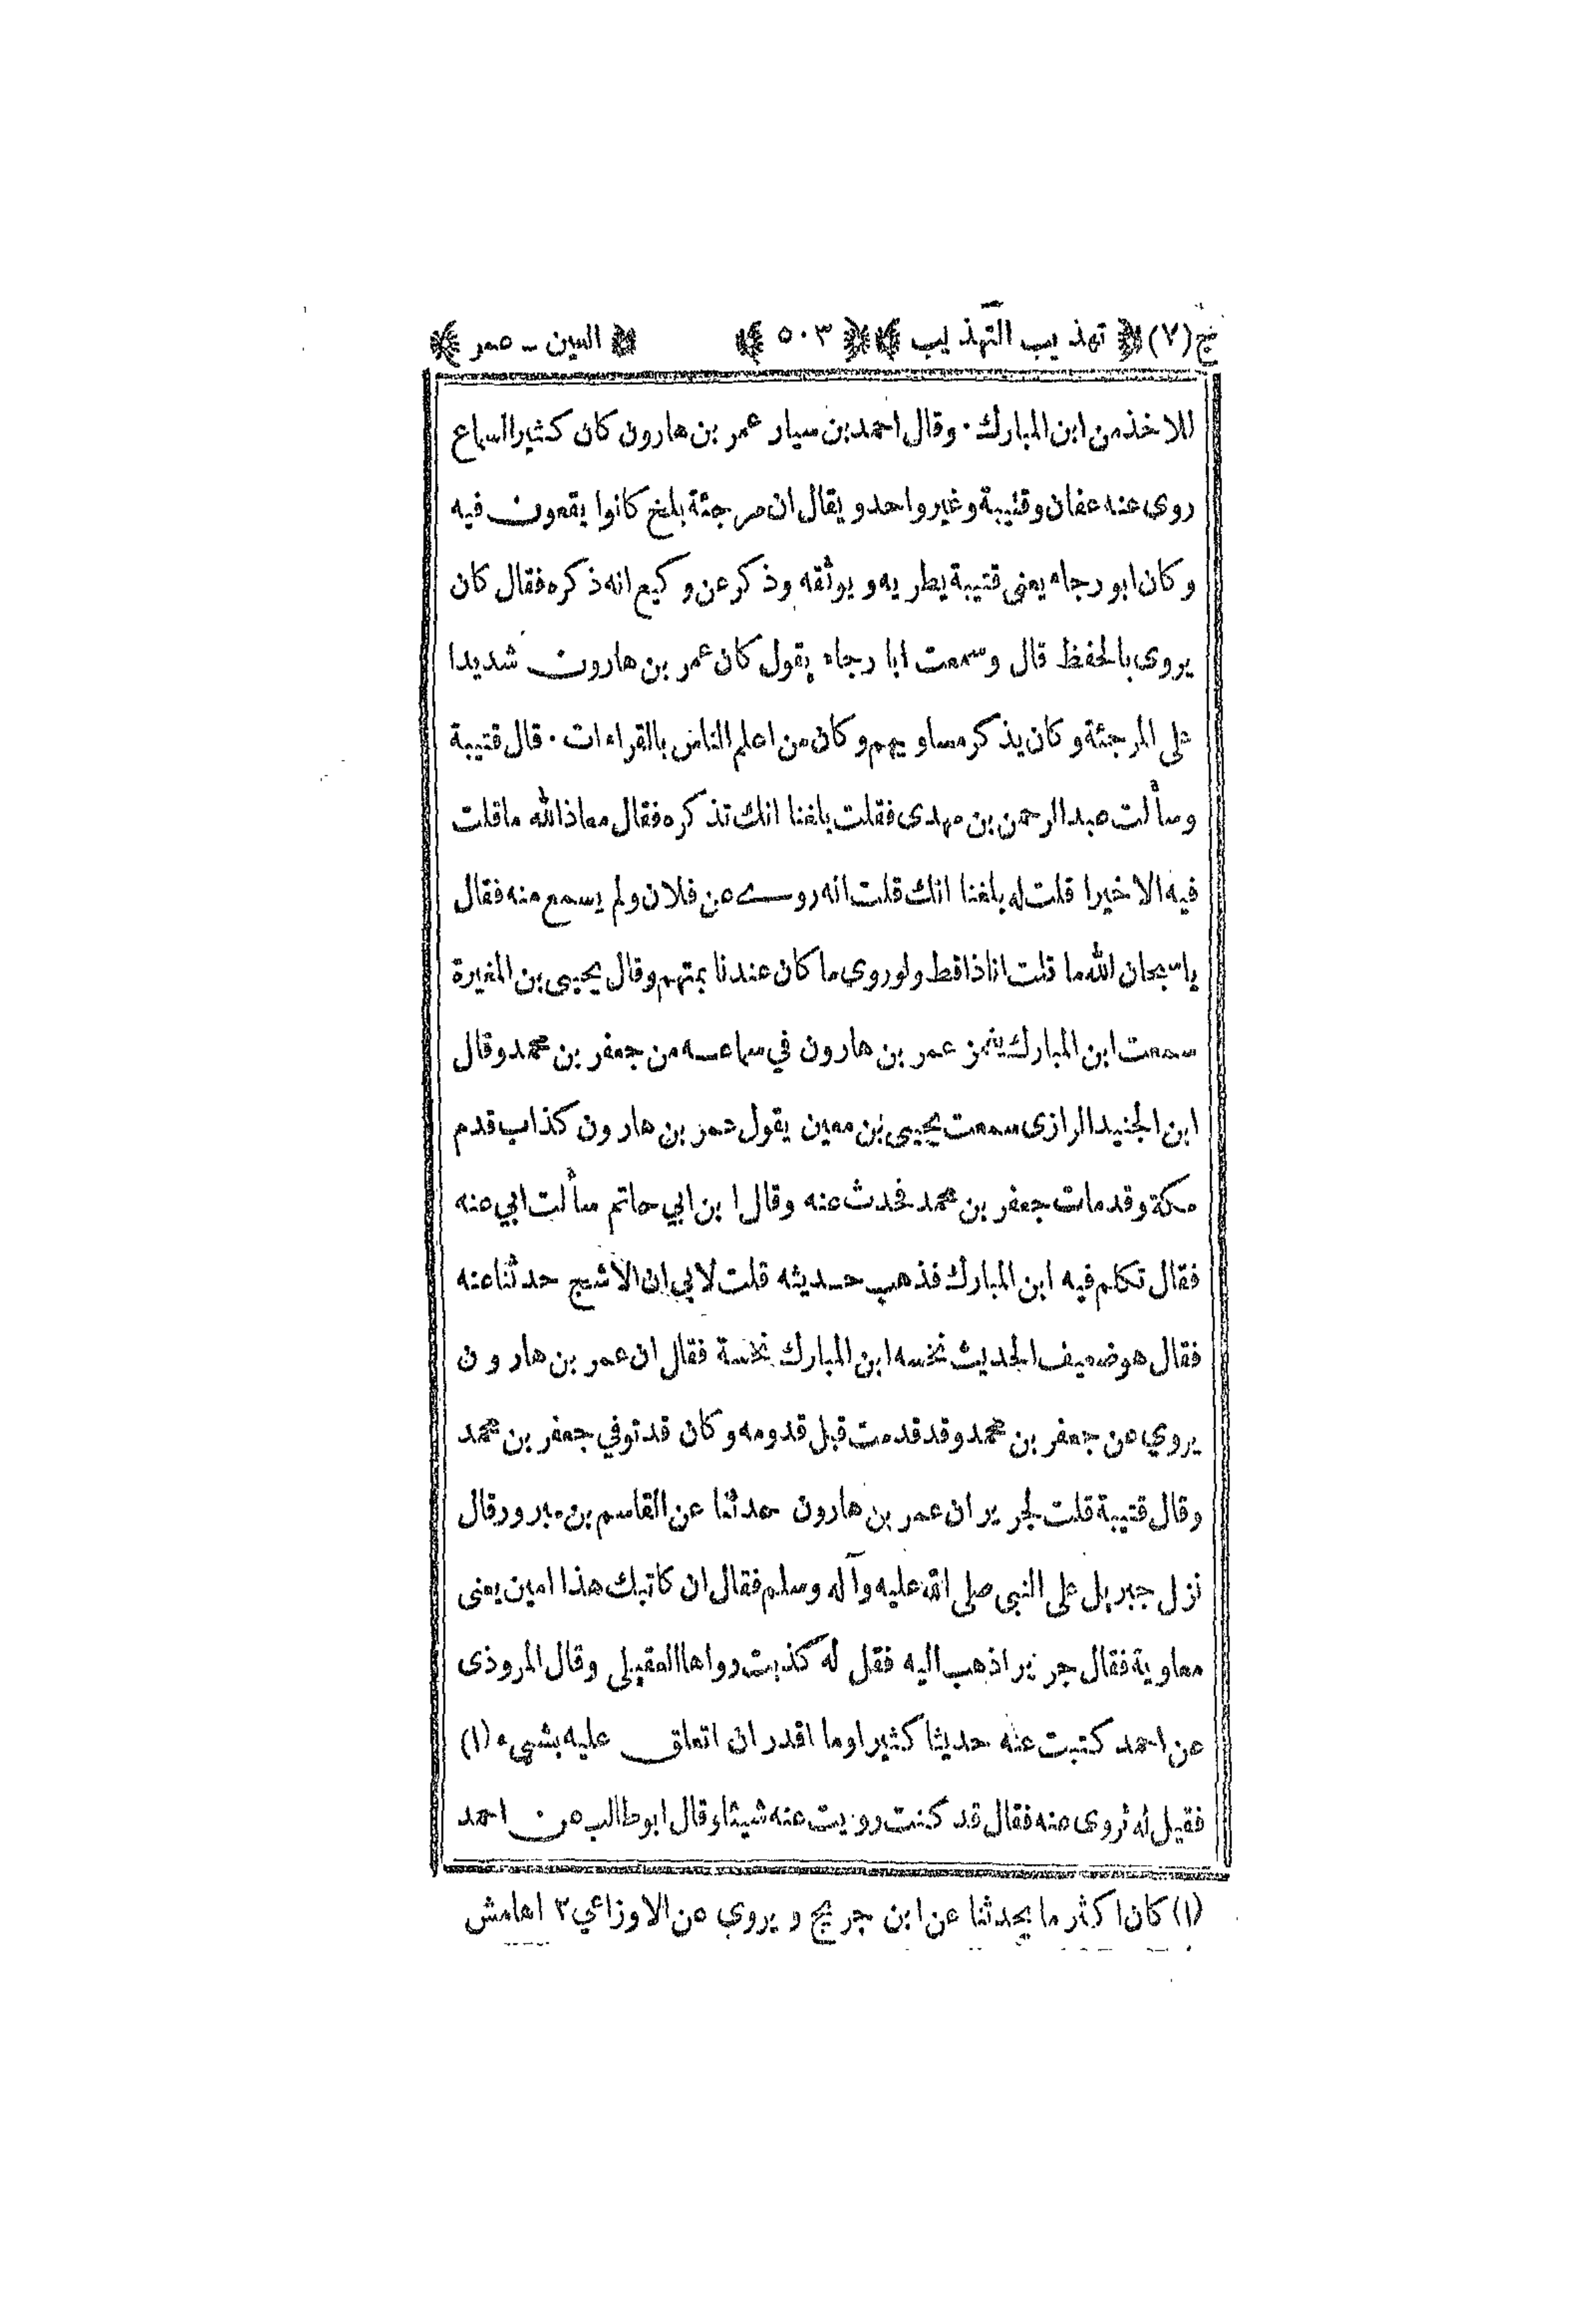 ج(٧) ﴿ تهذيب التهذيب ﴾ ﴿ ٥٠٣ ﴾ ﴿ العين - عمر ﴾
للاخذ من ابن المبارك · وقال احمد بن سيار عمر بن هارون كان كثير السماع
روى عنه عفان وقتيبة وغير واحد ويقال ان مرجئة بلخ كانوا يقعون فيه
وكان ابو رجاء يعنى قتيبة يطريه ويوثقه وذكر عن وكيع انه ذكره فقال كان
يروى بالحفظ قال وسمعت ابا رجاء يقول كان عمر بن هارون شديدا
على المرجئة وكان يذكر مساويهم وكان من اعلم الناس بالقراءات · قال قتيبة
وسألت عبد الرحمن بن مهدى فقلت بلغنا انك تذكره فقال معاذ الله ما قلت
فيه الا خيرا قلت له بلغنا انك قلت انه روى عن فلان ولم يسمع منه فقال
يا سبحان الله ما قلت انا ذا قط ولو روى ما كان عندنا بمتهم وقال يحيى بن المغيرة
سمعت ابن المبارك يغمز عمر بن هارون في سماعه من جعفر بن محمد وقال
ابن الجنيد الرازى سمعت يحيى بن معين يقول عمر بن هارون كذاب قدم
مكة وقد مات جعفر بن محمد فحدث عنه وقال ابن ابي حاتم سألت ابي عنه
فقال تكلم فيه ابن المبارك فذهب حديثه قلت لابي ان الاشج حدثنا عنه
فقال هو ضعيف الحديث نخسه ابن المبارك نخسة فقال ان عمر بن هارون
يروي عن جعفر بن محمد وقد قدمت قبل قدومه وكان قد توفي جعفر بن محمد
وقال قتيبة قلت لجرير ان عمر بن هارون حدثنا عن القاسم بن مبرور قال
نزل جبريل على النبى صلى الله عليه وآله وسلم فقال ان كاتبك هذا امين يعنى
معاوية فقال جرير اذهب اليه فقل له كذبت رواها العقيلي وقال المروذى
عن احمد كتبت عنه حديثا كثيرا وما اقدر ان اتعلق عليه بشيء (١)
فقيل له تروى عنه فقال قد كنت رويت عنه شيئا وقال ابو طالب عن احمد
(١) كان اكثر ما يحدثنا عن ابن جريج ويروي عن الاوزاعي ١٢ هامش